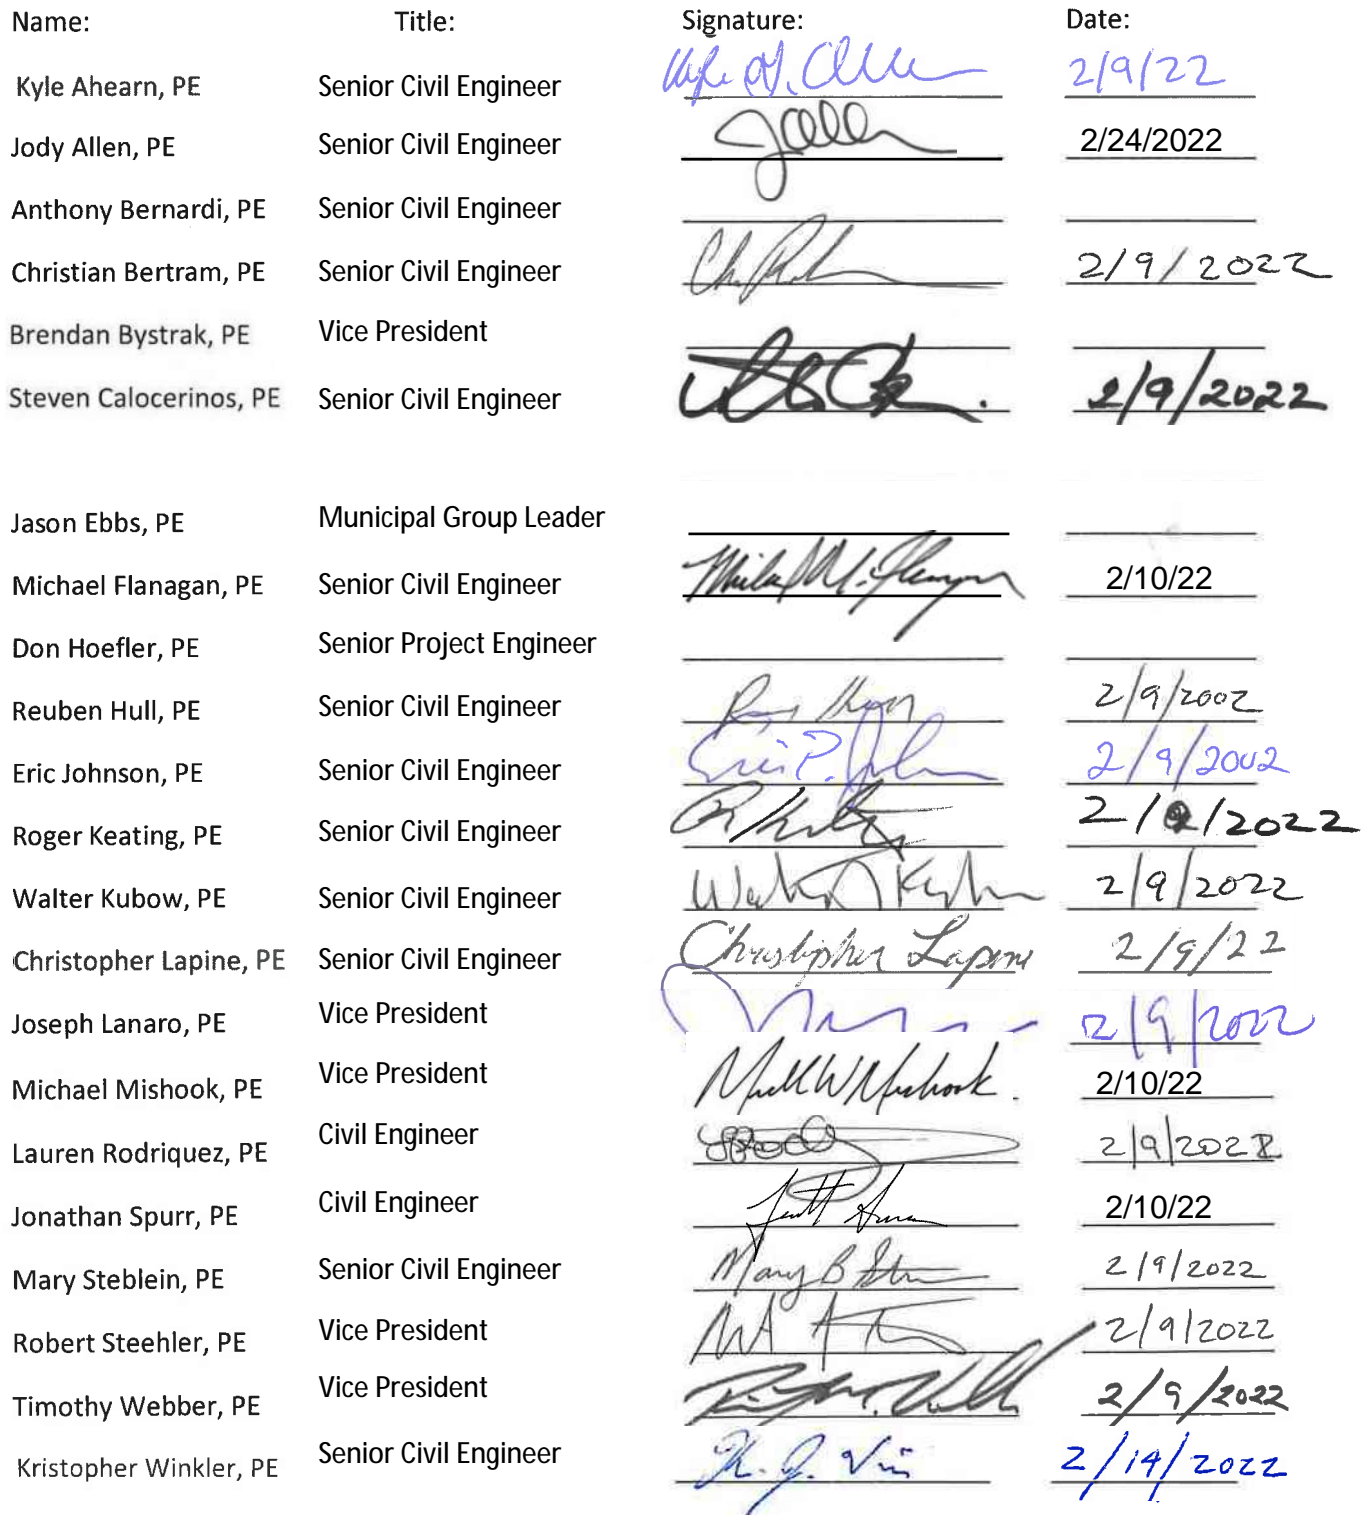 Name: Title: Signature: Date:
Kyle Ahearn, PE Senior Civil Engineer 2/9/22
Jody Allen, PE Senior Civil Engineer JAllen 2/24/2022
Anthony Bernardi, PE Senior Civil Engineer
Christian Bertram, PE Senior Civil Engineer 2/9/2022
Brendan Bystrak, PE Vice President
Steven Calocerinos, PE Senior Civil Engineer 2/9/2022
Jason Ebbs, PE Municipal Group Leader
Michael Flanagan, PE Senior Civil Engineer 2/10/22
Don Hoefler, PE Senior Project Engineer
Reuben Hull, PE Senior Civil Engineer 2/9/2002
Eric Johnson, PE Senior Civil Engineer Eric P. 2/9/2002
Roger Keating, PE Senior Civil Engineer 2/9/2022
Walter Kubow, PE Senior Civil Engineer 2/9/2022
Christopher Lapine, PE Senior Civil Engineer Christopher Lapine 2/9/22
Joseph Lanaro, PE Vice President 2/9/2022
Michael Mishook, PE Vice President W Mishook 2/10/22
Lauren Rodriquez, PE Civil Engineer 2/9/2022
Jonathan Spurr, PE Civil Engineer 2/10/22
Mary Steblein, PE Senior Civil Engineer Mary B 2/9/2022
Robert Steehler, PE Vice President 2/9/2022
Timothy Webber, PE Vice President 2/9/2022
Kristopher Winkler, PE Senior Civil Engineer K. J. 2/14/2022